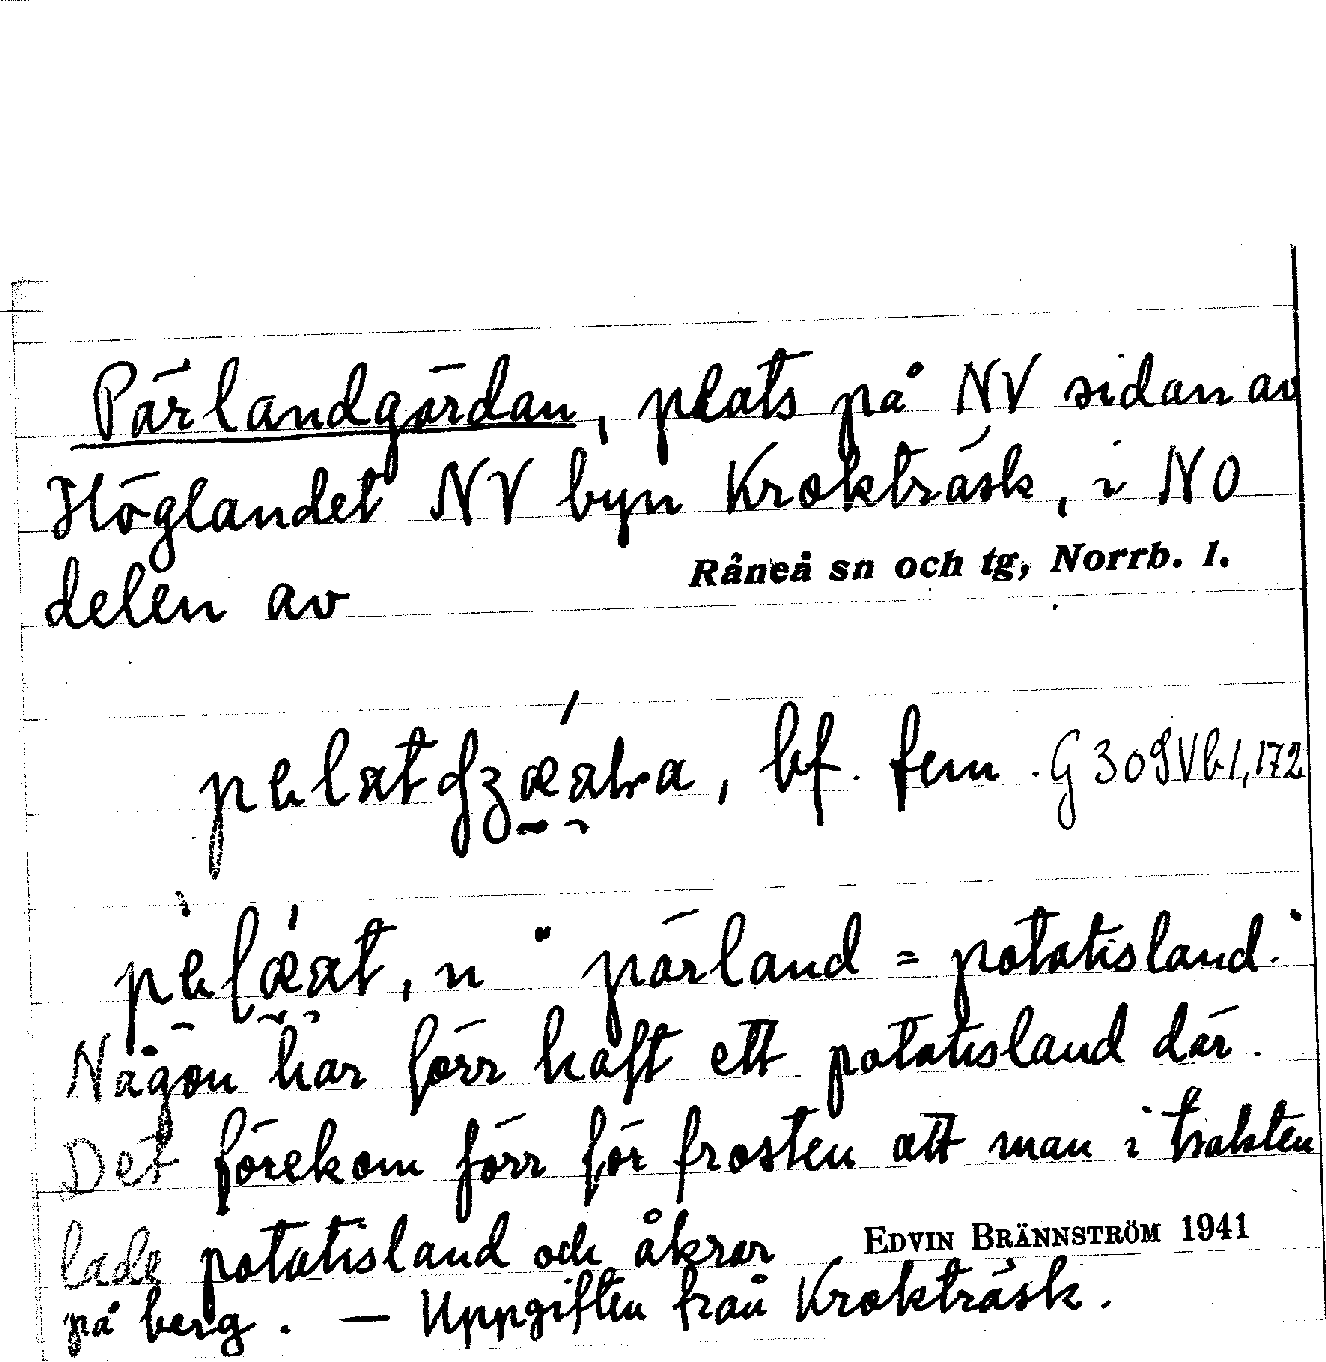 Pärlandgärdan, plats på NV sidan av
Höglandet NV byn Krokträsk, i NO
delen av Råneå sn och tg, Norrb. l.
bf. fem. G 309 Vb 1, 172
, n " pärland = potatisland."
Någon har förr haft ett potatisland där.
Det förekom förr för frosten att man i trakten
lade potatisland och åkrar EDVIN BRÄNNSTRÖM 1941
på berg. — Uppgiften från Krokträsk.